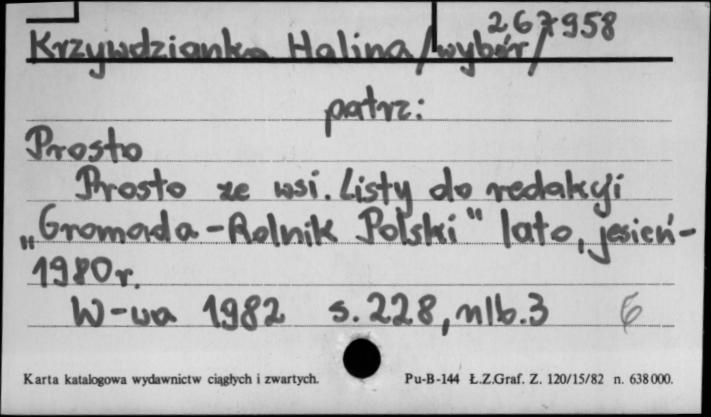 267958
Krzywdzianka Halina /wybór/
patrz:
Prosto
Prosto ze wsi. Listy do redakcji
„Gromada - Rolnik Polski" lato, jesień -
1980r.
W-wa 1982 s. 228, nlb. 3 6
Karta katalogowa wydawnictw ciągłych i zwartych. Pu-B-144 Ł.Z.Graf. Z. 120/15/82 n. 638000.